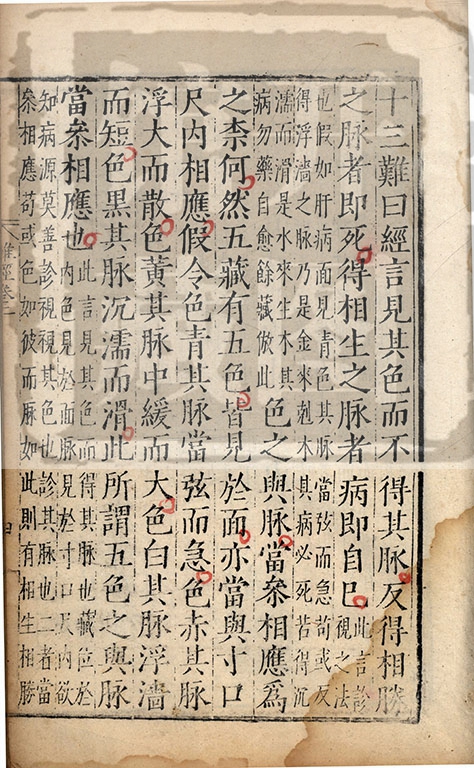 十三難曰經言見其色而不得其脉反得相勝
之脉者即死得相生之脉者病即自已此言診
視之法
也假如肝病面見青色其脉當弦而急苟或反
得浮濇之脉乃是金來剋木其病必死若得沉
濡而滑是水來生木其
病勿藥自愈餘藏倣此色之與脉當叅相應爲
之柰何然五藏有五色皆見於面亦當與寸口
尺內相應假令色青其脉當弦而急色赤其脉
浮大而散色黃其脉中緩而大色白其脉浮濇
而短色黑其脉沉濡而滑此所謂五色之與脉
當叅相應也此言見其色而得其脉也藏位於
內色見於面脉見於寸口尺內欲
知病源莫善診視視其色也診其脉也二者當
叅相應苟或色如彼而脉如此則有相生相勝
四